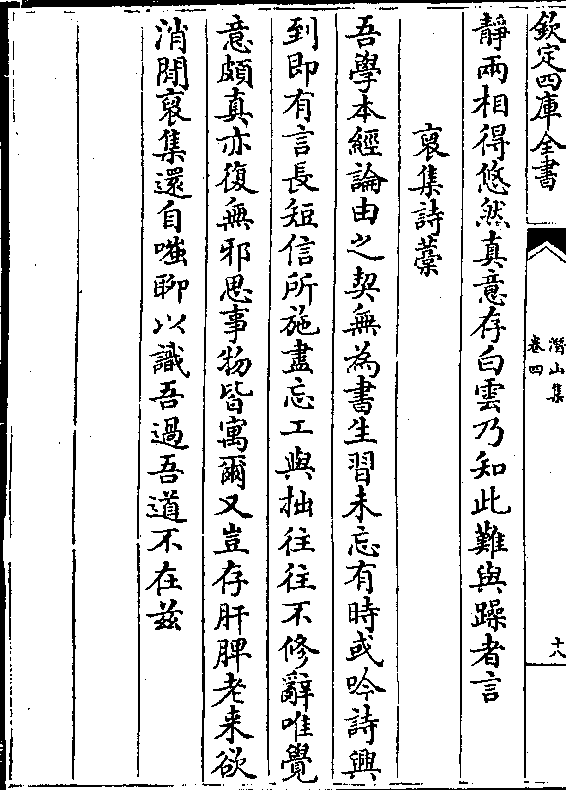 欽定四庫全書
潛山集
卷四
十八
靜兩相得悠然真意存白雲乃知此難與躁者言
裒集詩藁
吾學本經論由之契無為書生習未忘有時或吟詩興
到即有言長短信所施盡忘工與拙往往不修辭唯覺
意頗真亦復無邪思事物皆寓爾又豈存肝脾老来欲
消閒裒集還自嗤聊以識吾過吾道不在兹